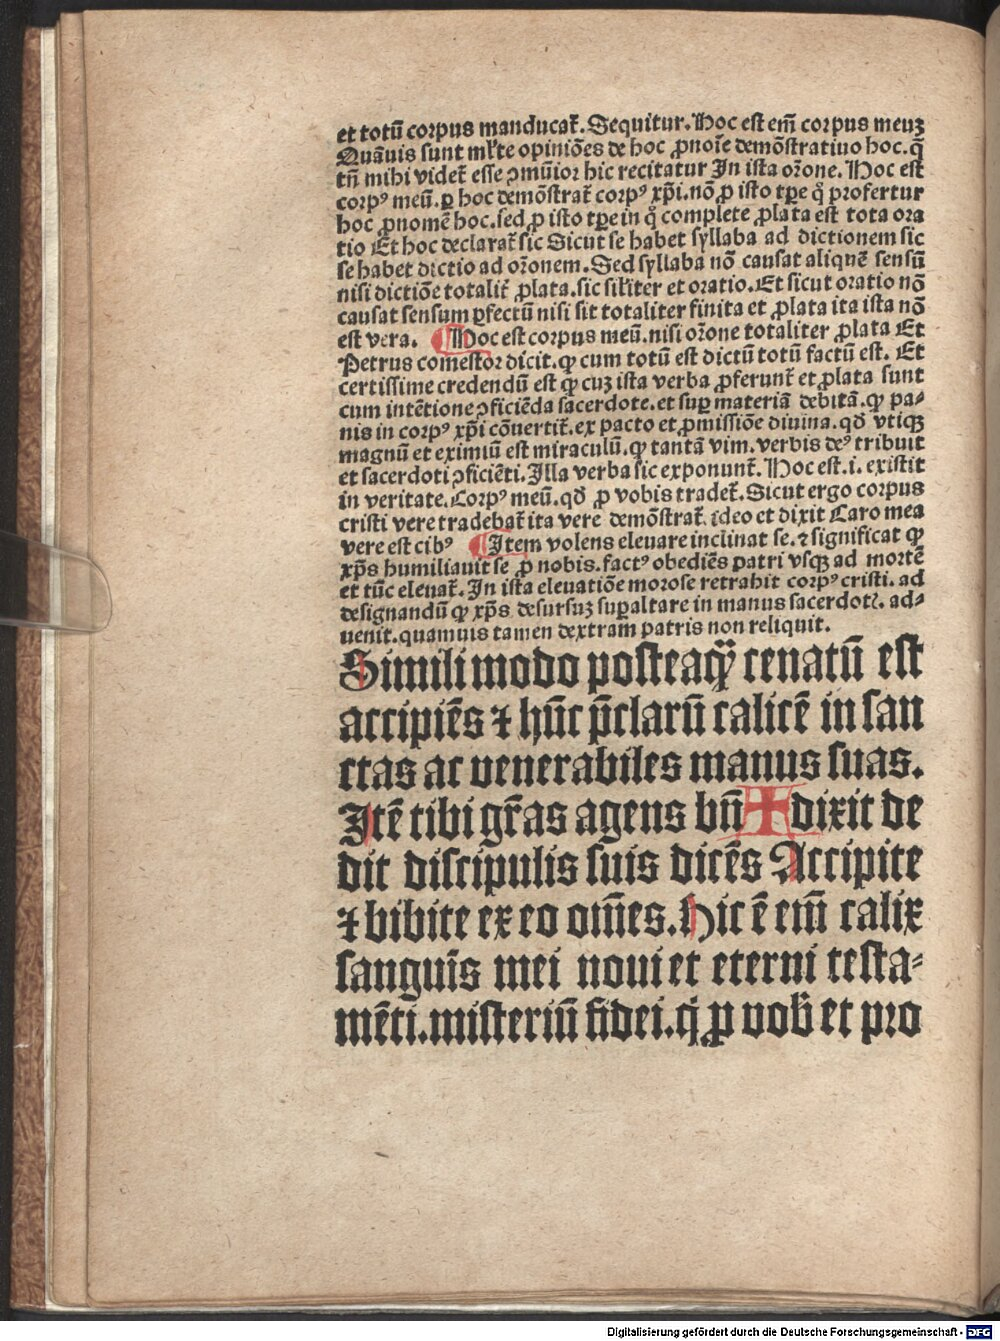 et totū corpus manducat᷑. Sequitur. Hoc est em̄ corpus meuꝫ
Quāuis sunt ml̄te opiniōes de hoc ꝓnoīe demōstratiuo hoc. q̄
tn̄ mihi videt᷑ esse ꝯmūior hic recitatur In ista or̄one. Hoc est
corpꝰ meū. ꝑ hoc demōstrat᷑ corpꝰ xp̄i. nō ꝓ isto tꝑe q̊ profertur
hoc ꝓnomē hoc. sed ꝓ isto tꝑe in q̊ complete ꝓlata est tota ora
tio Et hoc declarat᷑ sic Sicut se habet syllaba ad dictionem sic
se habet dictio ad or̄onem. Sed syllaba nō causat aliquē sensū
nisi dictiōe totalit᷑ ꝓlata. sic sil̄iter et oratio. Et sicut oratio nō
causat sensum ꝑfectū nisi sit totaliter finita et ꝓlata ita ista nō
est vera. ¶ Hoc est corpus meū. nisi or̄one totaliter ꝓlata Et
Petrus comestor dicit. ꝙ cum totū est dictū totū factū est. Et
certissime credendū est ꝙ cuꝫ ista verba ꝓferunt᷑ et ꝓlata sunt
cum intētione ꝯficiēda sacerdote. et suꝑ materiā debitā. ꝙ pa⸗
nis in corpꝰ xp̄i cōuertit᷑. ex pacto et ꝓmissiōe diuina. qd̄ vtiqꝫ
magnū et eximiū est miraculū. ꝙ tantā vim. verbis deꝰ tribuit
et sacerdoti ꝯficiēti. Illa verba sic exponunt᷑. Hoc est. i. existit
in veritate. Corpꝰ meū. qd̄ ꝓ vobis tradet᷑. Sicut ergo corpus
cristi vere tradebat᷑ ita vere demōstrat᷑. ideo et dixit Caro mea
vere est cibꝰ ¶ Item volens eleuare inclinat se. ⁊ significat ꝙ
xp̄s humiliauit se ꝓ nobis. factꝰ obediēs patri vsqꝫ ad mortē
et tūc eleuat᷑. In ista eleuatiōe morose retrahit corpꝰ cristi. ad
designandū ꝙ xp̄s desursuꝫ suꝑaltare in manus sacerdotꝭ. ad⸗
uenit. quamuis tamen dextram patris non reliquit.
Simili modo posteaqȝ̄ cenatū est
accipiēs ⁊ hūc p̄clarū calicē in san
ctas ac venerabiles manus suas.
Itē tibi gr̄as agens bn̄ ✠ dixit de
dit discipulis suis dicēs Accipite
⁊ bibite ex eo om̄es. Hic ē em̄ calix
sanguīs mei noui et eterni testa⸗
mēti. misteriū fidei. q̇ ꝓ vob̄ et pro
Digitalisierung gefördert durch die Deutsche Forschungsgemeinschaft - DFG